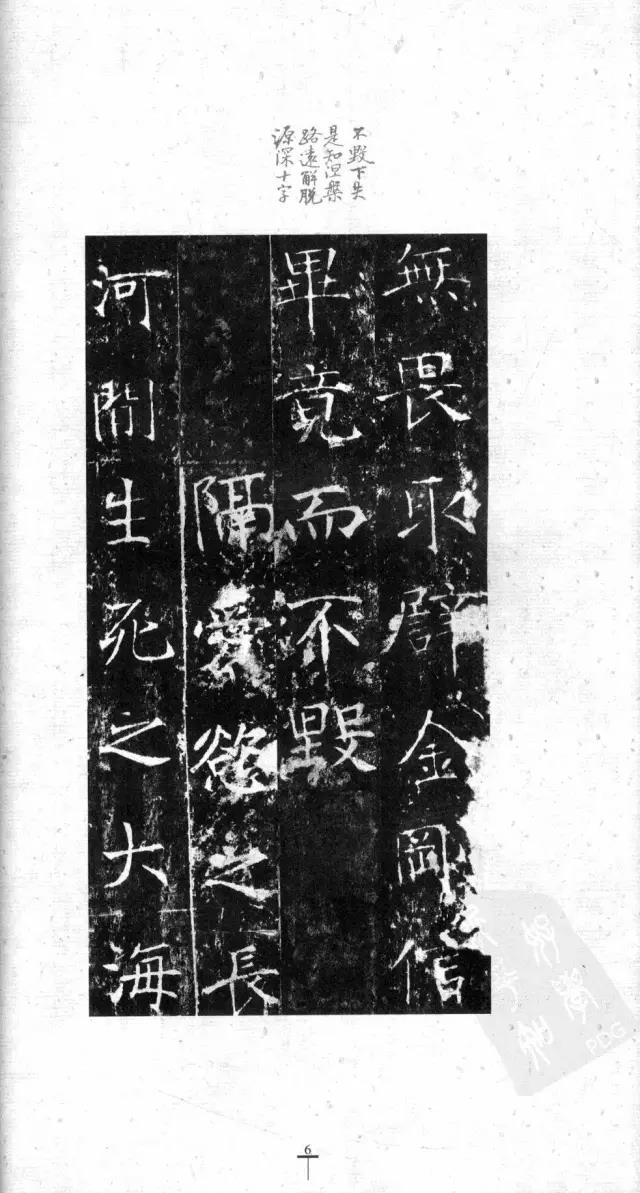 不毀下失
是知涅槃
路遠解脫
源深十字
無畏取譬金剛信
畢竟而不毀
隔愛慾之長
河間生死之大海
6
PDG